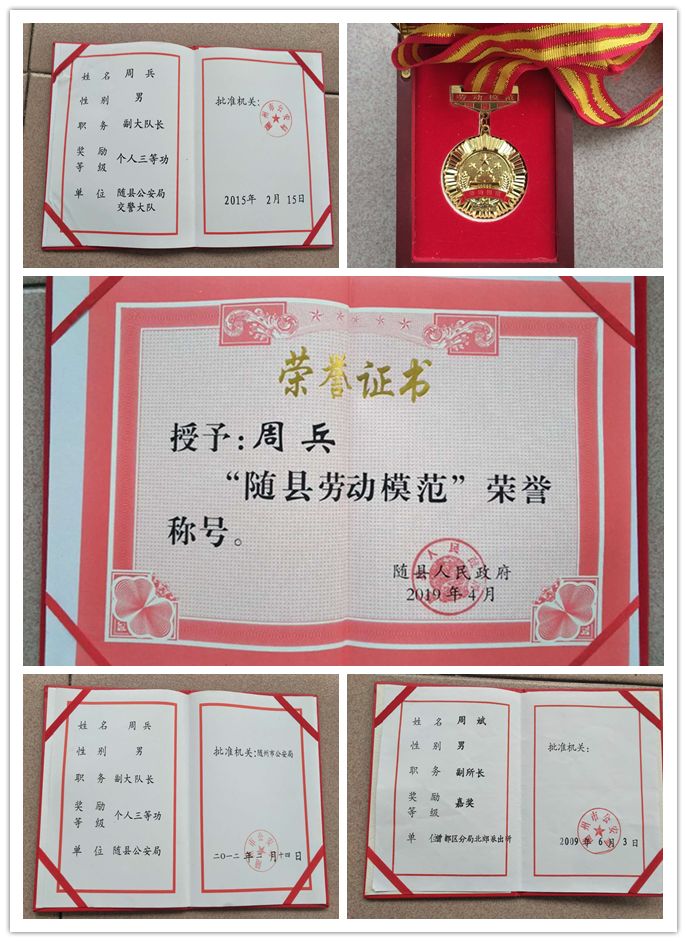 姓 名 周 兵
性 别 男
职 务 副大队长
奖 励
等 级 个人三等功
单 位 随县公安局
交警大队
批准机关：
2015年 2月 15日
劳动模范
荣誉证书
授予：周兵
“随县劳动模范”荣誉
称号。
随县人民政府
2019年4月
姓 名 周 兵
性 别 男
职 务 副大队长
奖 励
等 级 个人三等功
单 位 随县公安局
批准机关：随州市公安局
二〇一二年二月十四日
姓 名 周 斌
性 别 男
职 务 副所长
奖 励
等 级 嘉奖
单 位 曾都区分局北郊派出所
批准机关：
随州市公安局
2009年 6月 3日